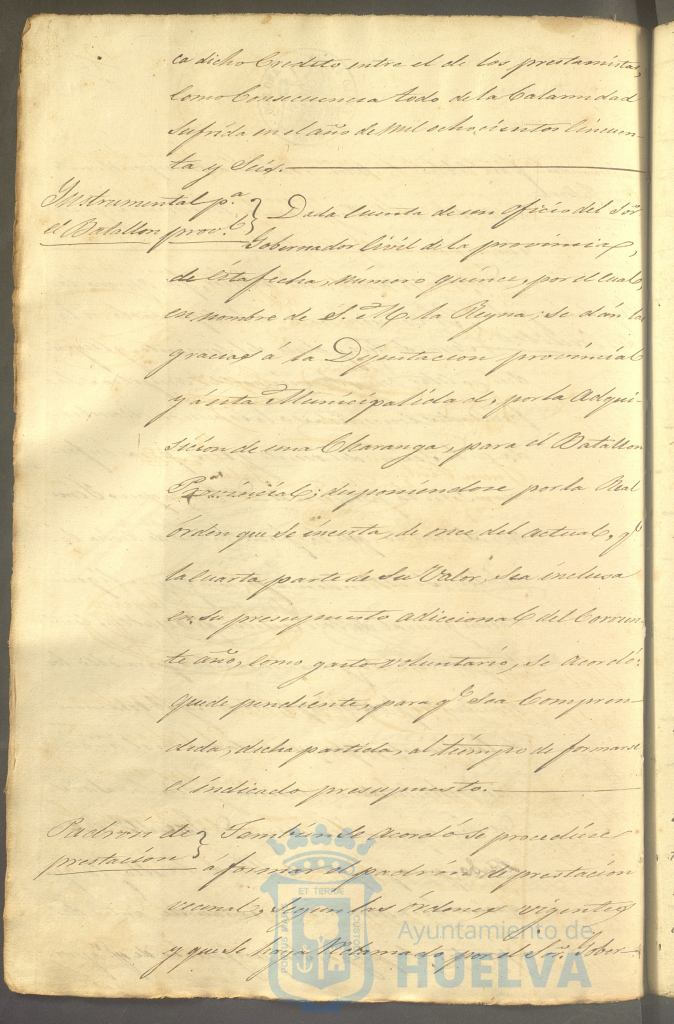 ca dicho Credito entre el de los prestamistas,
como Consecuencia todo de la Calamidad
sufrida en el año de mil ochocientos Cincuen-
ta y Seis.
Instrumental p.ª
el Batallon prov.l
Dada cuenta de un oficio del Sor
Gobernador Civil de la provincia,
de esta fecha, número quince, por el cual,
en nombre de S. M. la Reyna; se dán las
gracias á la Diputacion provincial
y á esta Municipalidad, por la Adqui-
sicion de una Charanga, para el Batallon
Provincial; disponiendose por la Real
órden que se incerta, de once del actual, q.e
la cuarta parte de su Valor, sea inclusa
en su presupuesto adiccional del Corrien-
te año, como gasto voluntario, se acordó:
quede pendiente, para q.e sea Compren-
dida, dicha partida, al tiempo de formarse
el indicado presupuesto.
Padrón de
prestación
Tambien se acordó se procediese
a formar el padrón de prestación
vecinal, segun las órdenes vigentes
y que se haya reclamado por el Sor. Gober-
ET TERRÆ
PORTUS MARIS
CUSTODIA
Ayuntamiento de
HUELVA